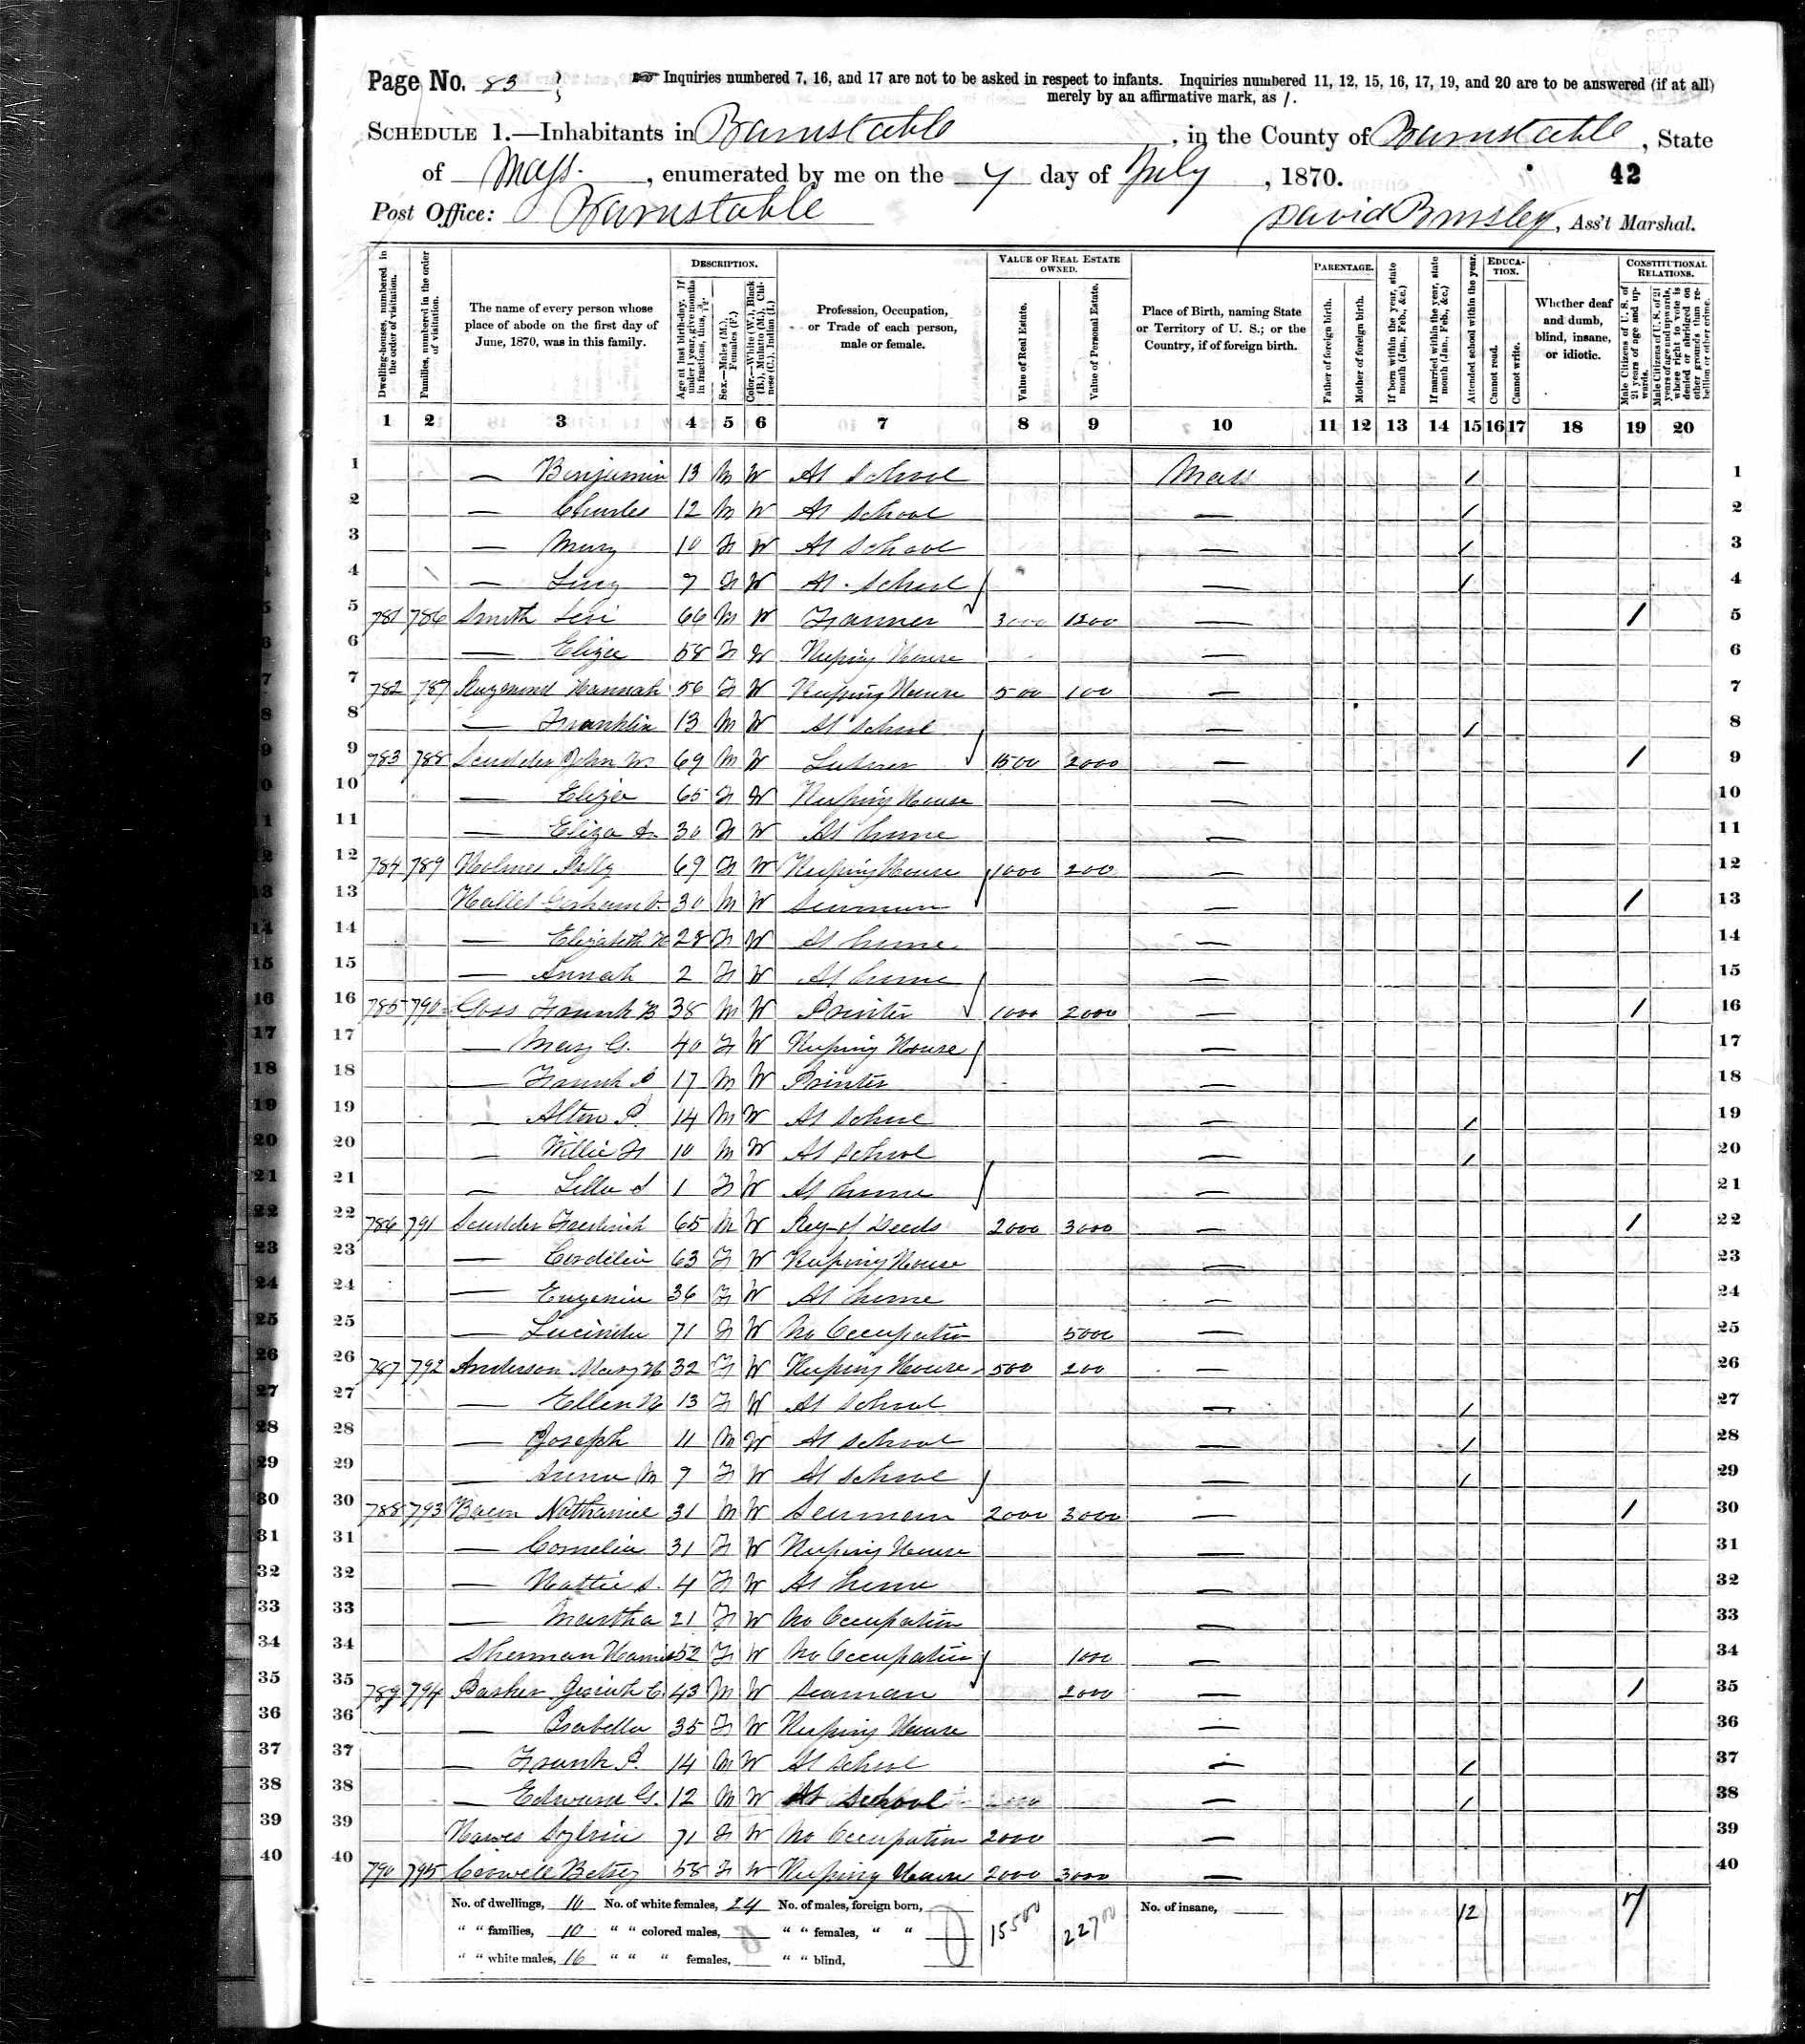 Page No. 83
Inquiries numbered 7, 16, and 17 are not to be asked in respect to infants. Inquiries numbered 11, 12, 15, 16, 17, 19, and 20 are to be answered (if at all)
merely by an affirmative mark, as /.
SCHEDULE 1.—Inhabitants in Barnstable, in the County of Barnstable, State
of Mass., enumerated by me on the 7 day of July, 1870.
42
Post Office: Barnstable
David Bursley, Ass't Marshal.
Dwelling-houses, numbered in the order of visitation.
Families, numbered in the order of visitation.
The name of every person whose place of abode on the first day of June, 1870, was in this family.
DESCRIPTION.
Age at last birth-day. If under 1 year, give months in fractions, thus, 3/12.
Sex.—Males (M.), Females (F.)
Color.—White (W.), Black (B.), Mulatto (M.), Chinese (C.), Indian (I.)
Profession, Occupation, or Trade of each person, male or female.
VALUE OF REAL ESTATE OWNED.
Value of Real Estate.
Value of Personal Estate.
Place of Birth, naming State or Territory of U. S.; or the Country, if of foreign birth.
PARENTAGE.
Father of foreign birth.
Mother of foreign birth.
If born within the year, state month (Jan., Feb., &c.)
If married within the year, state month (Jan., Feb., &c.)
Attended school within the year.
EDUCATION.
Cannot read.
Cannot write.
Whether deaf and dumb, blind, insane, or idiotic.
CONSTITUTIONAL RELATIONS.
Male Citizens of U. S. of 21 years of age and upwards.
Male Citizens of U. S. of 21 years of age and upwards, whose right to vote is denied or abridged on other grounds than rebellion or other crime.
1 2 3 4 5 6 7 8 9 10 11 12 13 14 15 16 17 18 19 20
1 — Benjamin 13 M W At School Mass / 1
2 — Charles 12 M W At School — / 2
3 — Mary 10 F W At School — / 3
4 — Lucy 7 F W At School — / 4
5 781 786 Smith Levi 66 M W Farmer 3000 1200 — / 5
6 — Eliza 58 F W Keeping House — 6
7 782 787 Raymond Hannah 56 F W Keeping House 500 100 — 7
8 — Franklin 13 M W At School — / 8
9 783 788 Scudder John W. 69 M W 1500 2000 — / 9
10 — Eliza 65 F W Keeping House — 10
11 — Eliza A. 30 F W At home — 11
12 784 789 Holmes Polly 69 F W Keeping House 1000 200 — 12
13 Hallet Gorham 30 M W Seaman — / 13
14 — Elizabeth H 28 F W At home — 14
15 — Annah 2 F W At home — 15
16 785 790 Goss Frank B 38 M W Printer 1000 2000 — / 16
17 — Mary G. 40 F W Keeping House — 17
18 — Frank P 17 M W Printer — 18
19 — Alton P. 14 M W At School — / 19
20 — Willie F 10 M W At School — / 20
21 — Lilla S 1 F W At home — 21
22 786 791 Scudder Frederick 65 M W Reg of Deeds 2000 3000 — / 22
23 — Cordelia 63 F W Keeping House — 23
24 — Eugenia 36 F W At home — 24
25 — Lucinda 71 F W No Occupation 5000 — 25
26 787 792 Anderson Mary H 32 F W Keeping House 500 200 — 26
27 — Ellen H 13 F W At School — / 27
28 — Joseph 11 M W At School — / 28
29 — Anna M 7 F W At School — / 29
30 788 793 Bacon Nathaniel 31 M W Seaman 2000 3000 — / 30
31 — Cornelia 31 F W Keeping House — 31
32 — Hattie S. 4 F W At home — 32
33 — Martha 21 F W No Occupation — 33
34 Sherman 52 F W No Occupation 1000 — 34
35 789 794 Parker C. 43 M W Seaman 2000 — / 35
36 — Isabella 35 F W Keeping House — 36
37 — Frank P. 14 M W At School — / 37
38 — Edward G. 12 M W At School — / 38
39 Hawes Sylvia 71 F W No Occupation 2000 — 39
40 790 795 Crowell Betsey 58 F W Keeping House 2000 3000 — 40
No. of dwellings, 10 No. of white females, 24 No. of males, foreign born, 15500 22700 No. of insane, 12 7
" " families, 10 " " colored males, " " females, " " 0
" " white males, 16 " " " females, " " blind,